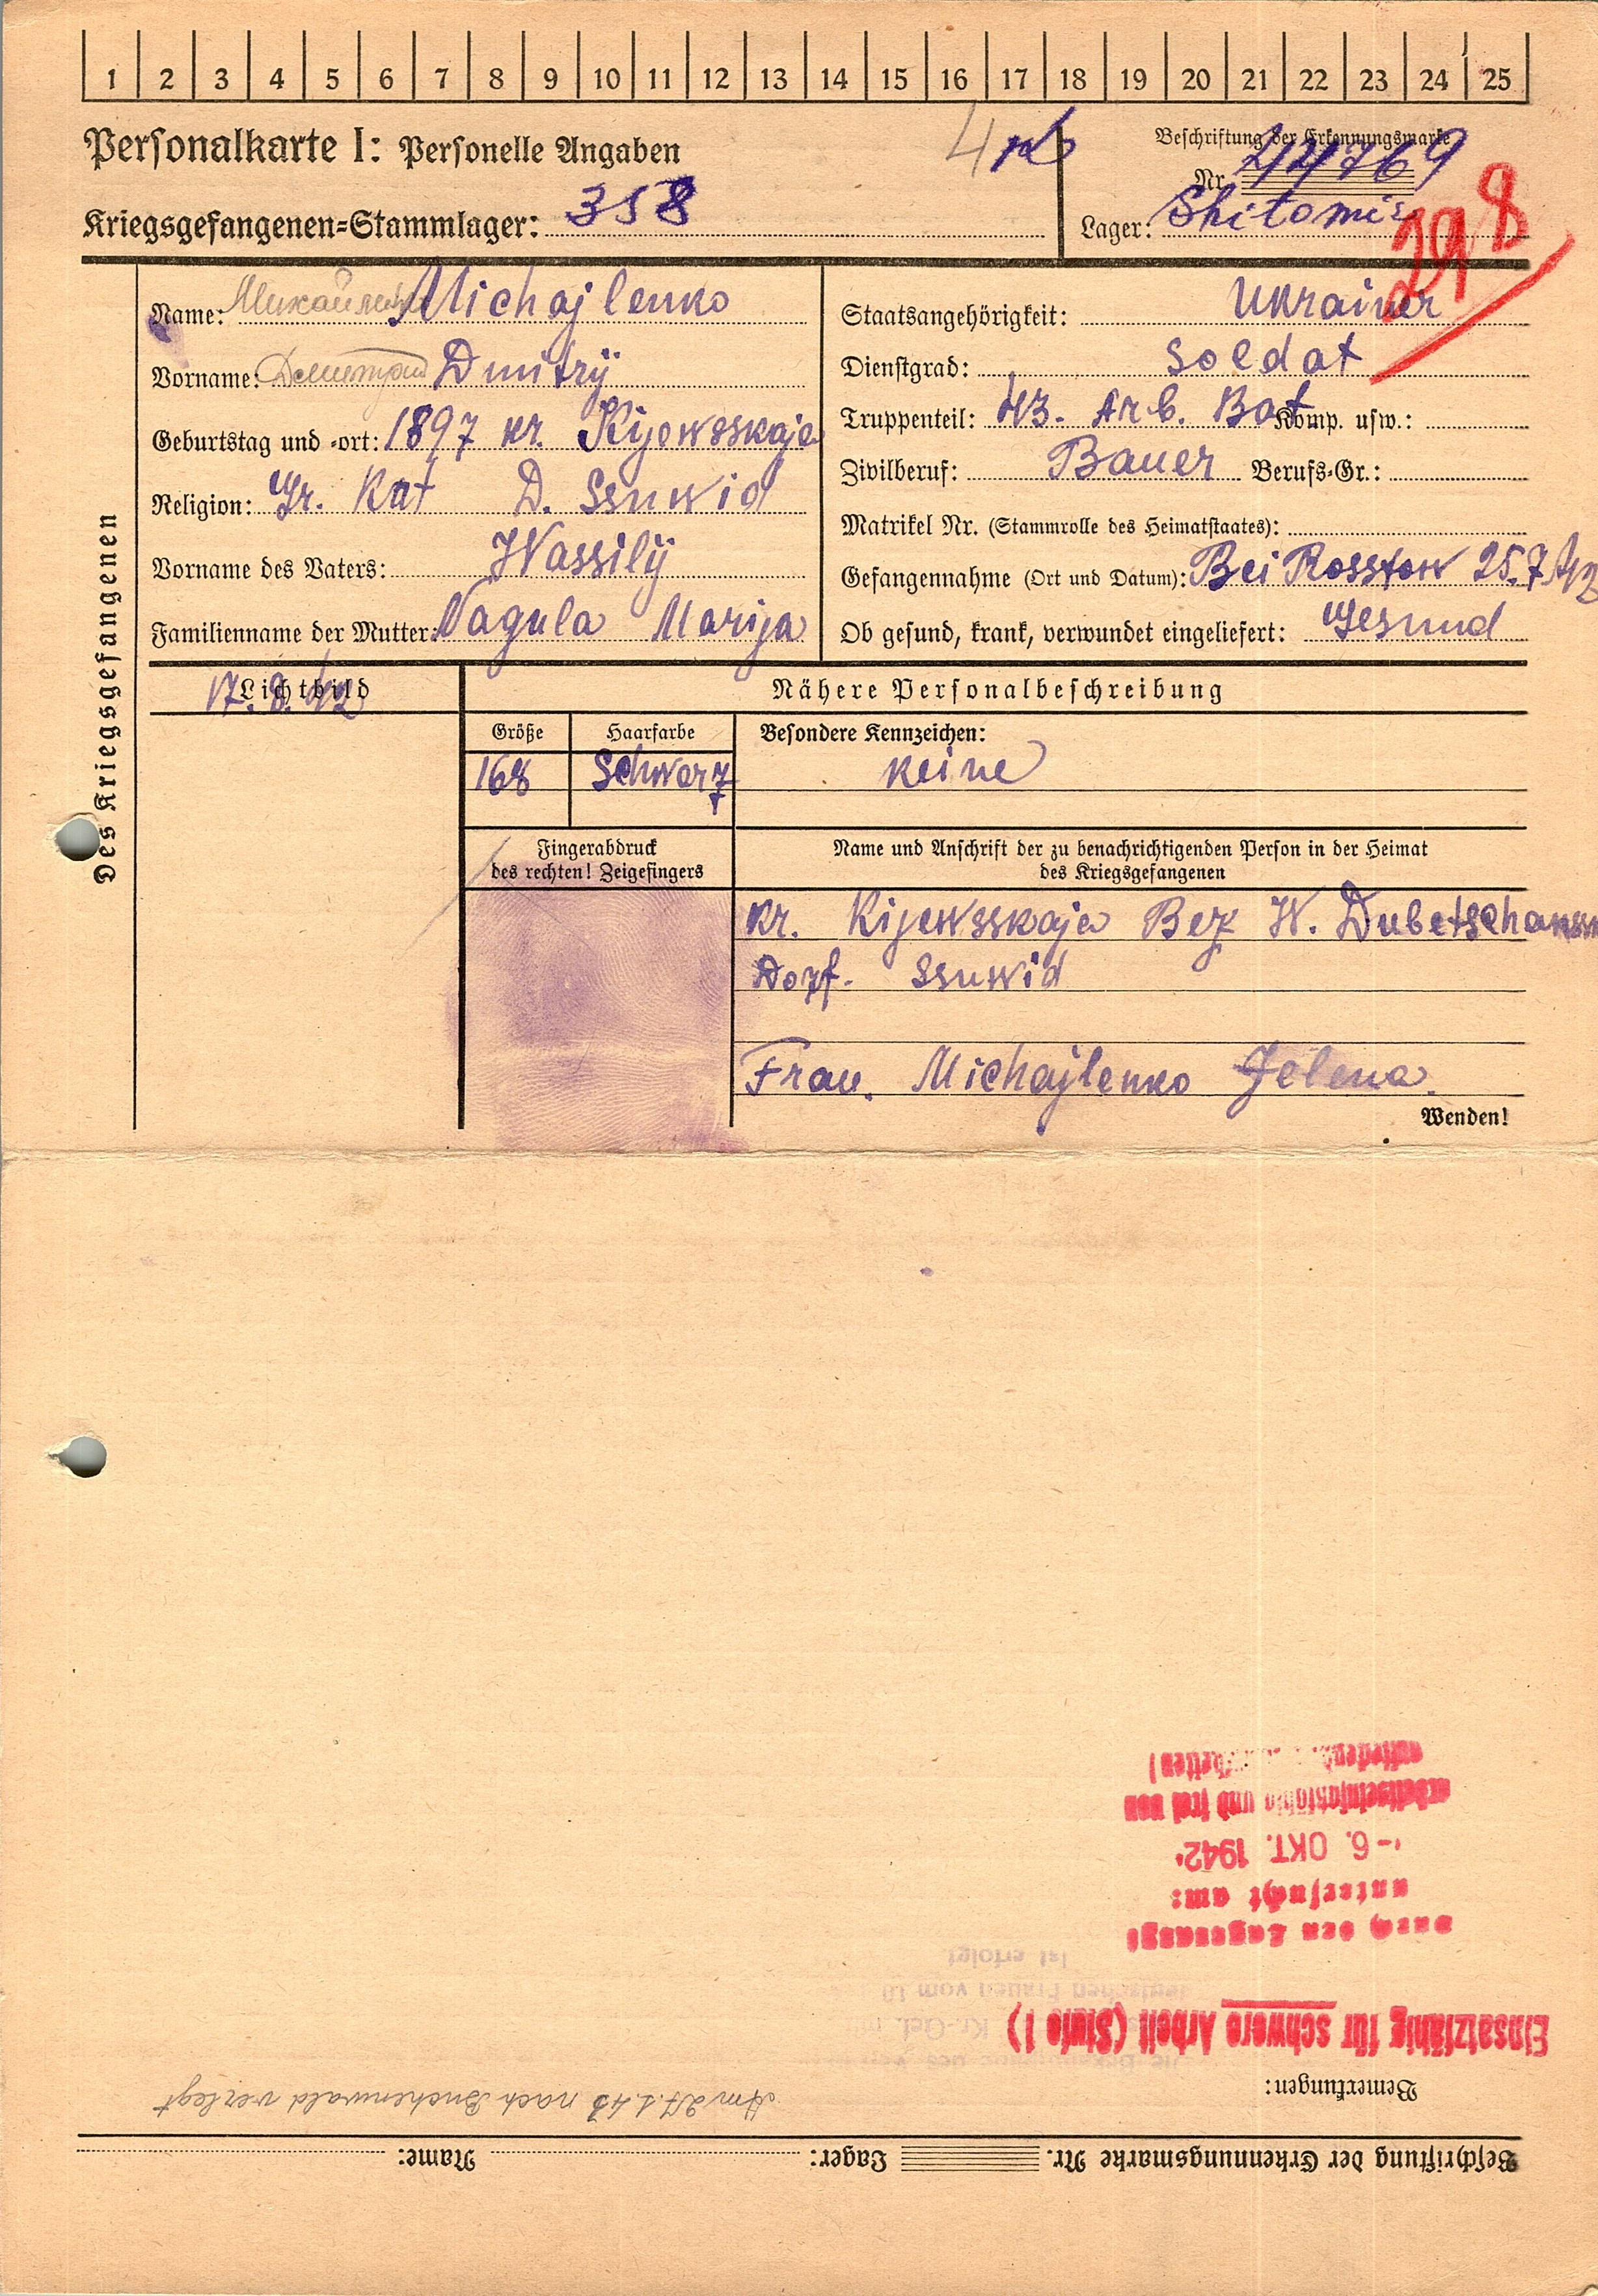 1 2 3 4 5 6 7 8 9 10 11 12 13 14 15 16 17 18 19 20 21 22 23 24 25
Personalkarte I: Personelle Angaben
4
Beschriftung der Erkennungsmarke
Nr. 22769
Kriegsgefangenen=Stammlager: 358
Lager: Shitomir
298
Des Kriegsgefangenen
Name: Михайленко Michajlenko
Vorname: Дмитрий Dmitrij
Geburtstag und =ort: 1897 kr. Kijewsskaja
Religion: Gr. Kat D. Ssuwid
Vorname des Vaters: Wassilij
Familienname der Mutter: Nagula Marija
Staatsangehörigkeit: Ukrainer
Dienstgrad: Soldat
Truppenteil: 43. Arb. Bat Komp. usw.:
Zivilberuf: Bauer Berufs=Gr.:
Matrikel Nr. (Stammrolle des Heimatstaates):
Gefangennahme (Ort und Datum): Bei Rosstow 25.7.42
Ob gesund, krank, verwundet eingeliefert: Gesund
Lichtbild
17.8.42
Nähere Personalbeschreibung
Größe Haarfarbe Besondere Kennzeichen:
168 Schwarz keine
Fingerabdruck
des rechten! Zeigefingers
Name und Anschrift der zu benachrichtigenden Person in der Heimat
des Kriegsgefangenen
kr. Kijewsskaja Bez W.
Dorf. Ssuwid
Frau. Michajlenko Jelena.
Wenden!
Beschriftung der Erkennungsmarke Nr. Lager: Name:
Bemerkungen:
Am 27.1.43 nach Buchenwald verlegt
Einsatzfähig für schwere Arbeit (Stufe 1)
Kr.-Gef.
deutschen Frauen vom
ist erfolgt
Durch den Lagerarzt
untersucht am:
- 6. OKT. 1942
arbeitseinsatzfähig und frei von